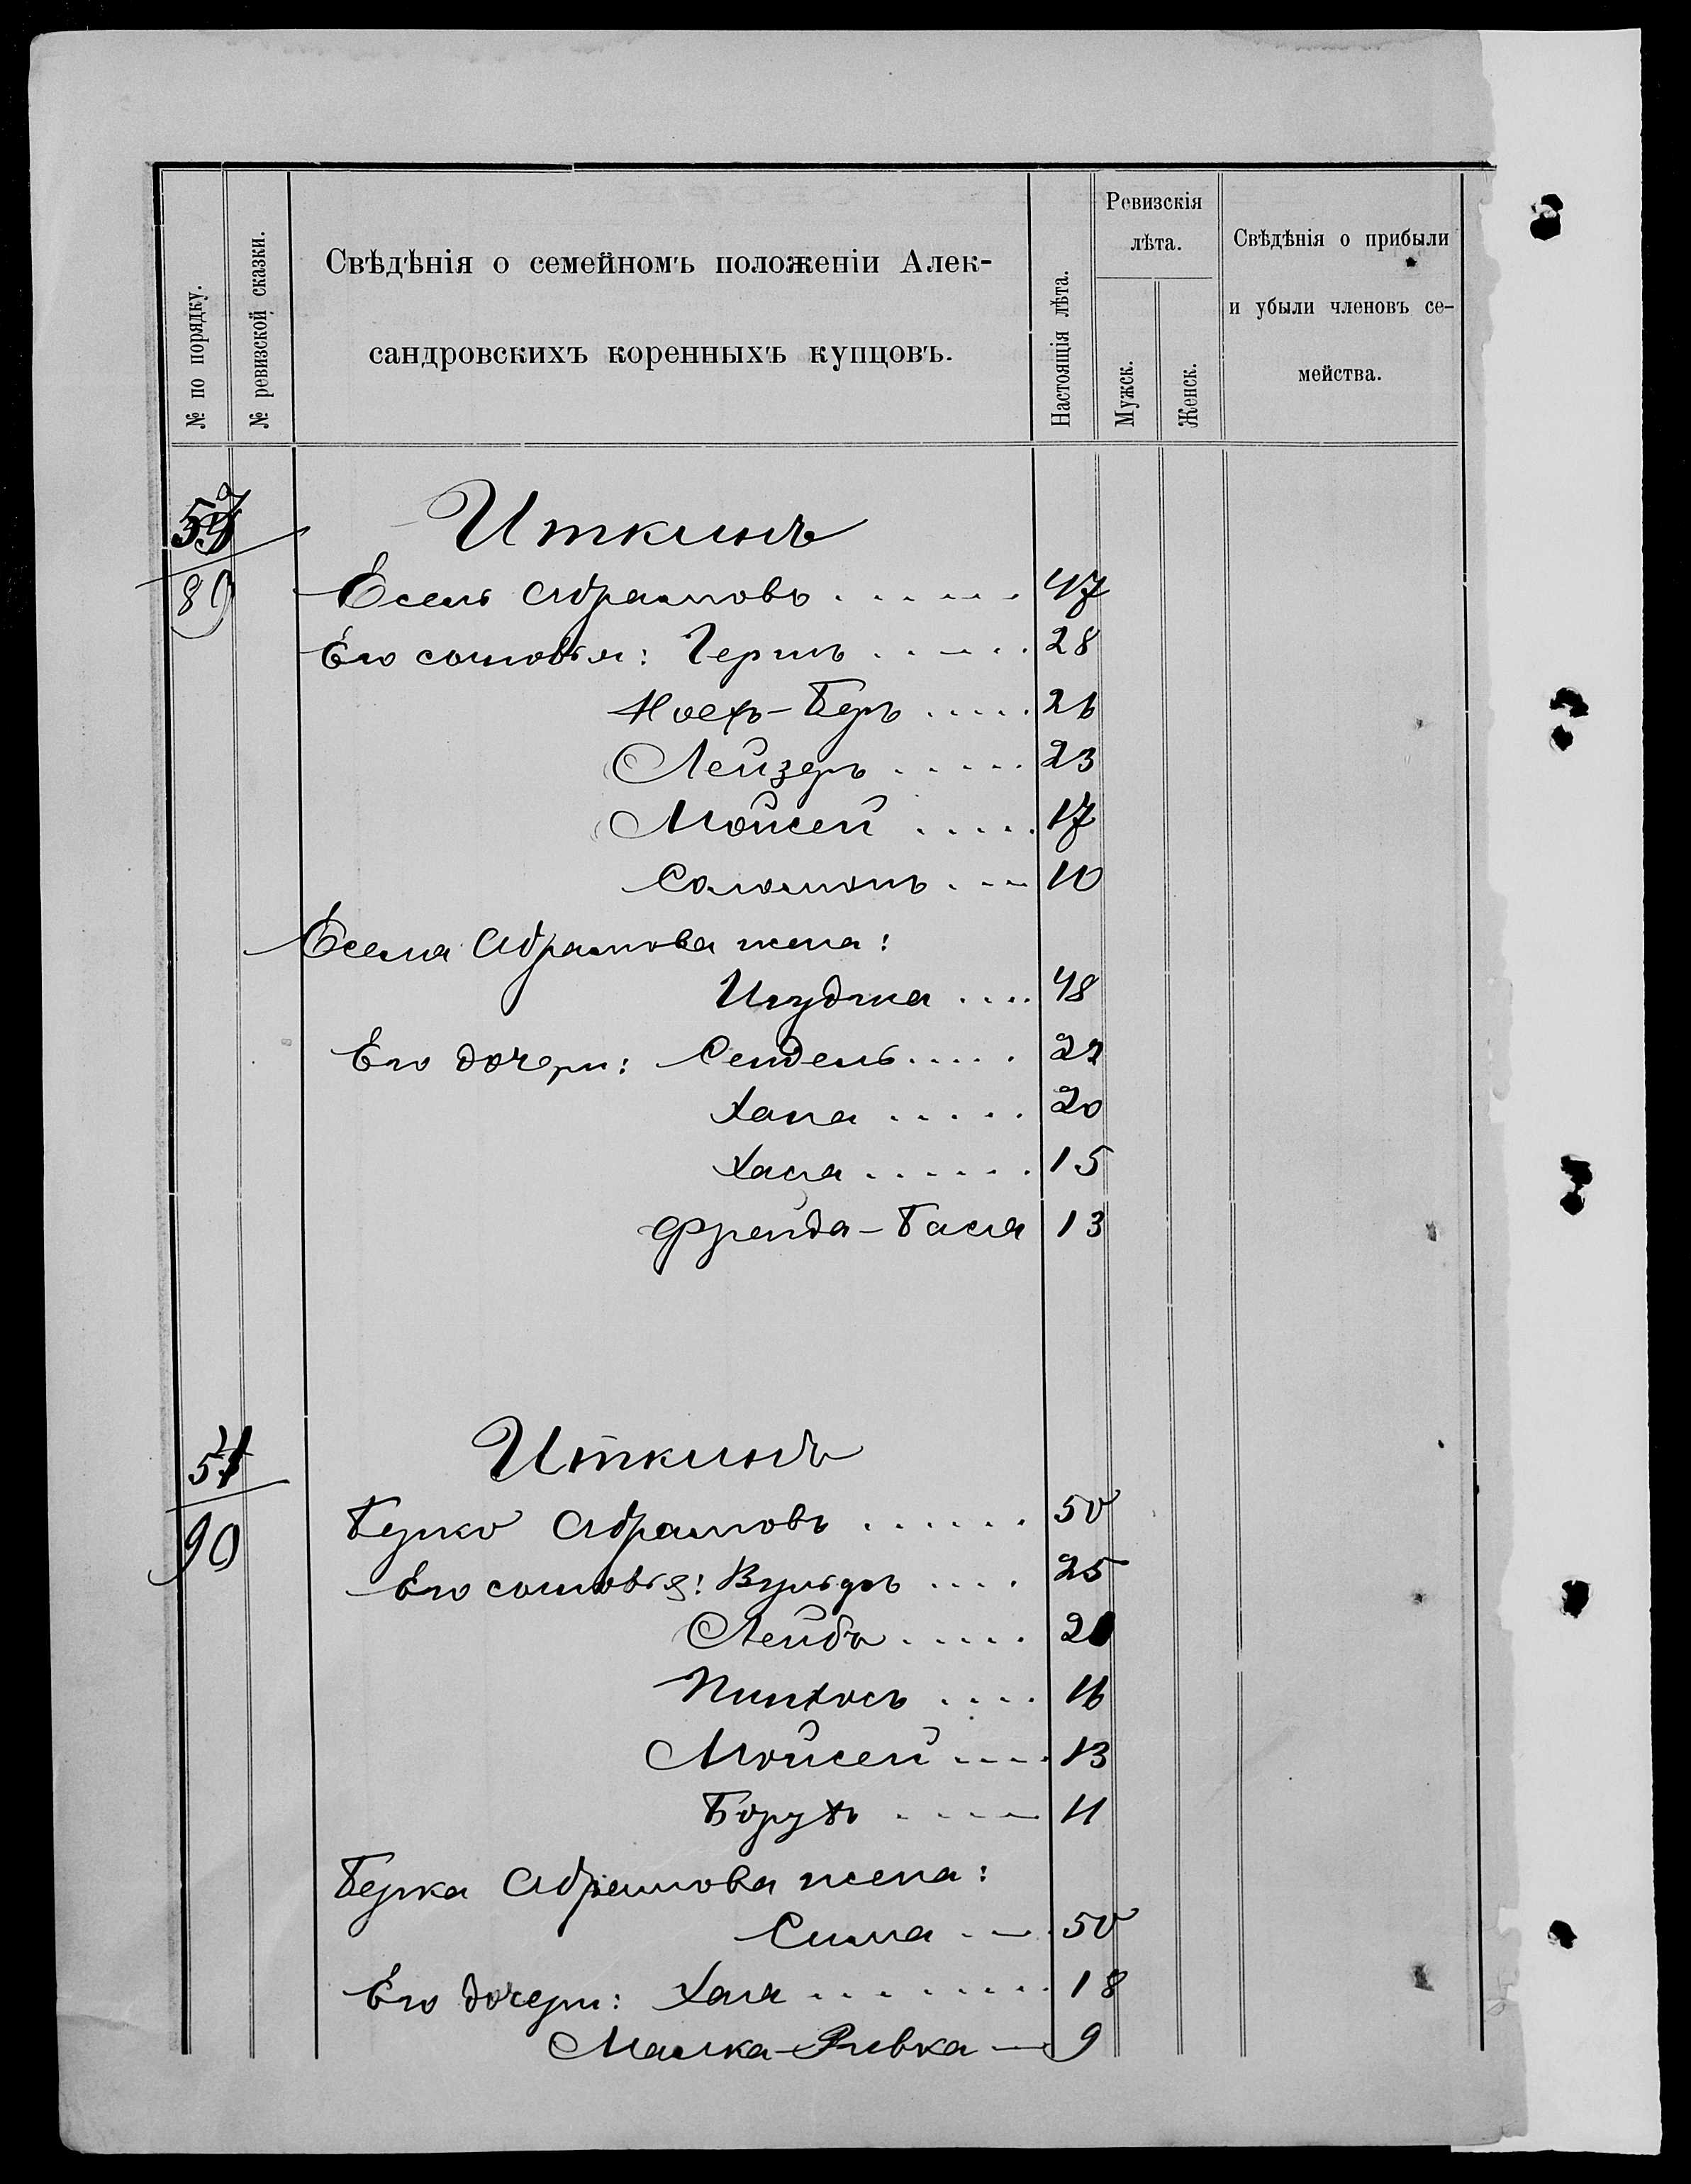 № по порядку.
№ ревизской сказки.
Свѣдѣнія о семейномъ положеніи Алек-
сандровскихъ коренныхъ купцовъ.
Настоящія лѣта.
Ревизскія
лѣта.
Мужск.
Женск.
Свѣдѣнія о прибыли
и убыли членовъ се-
мейства.
Иткинъ
89
Есель Абрамовъ . . . . . . 47
Его сыновья: Герцъ . . . . . 28
Ноехъ-Беръ . . . . . 26
Лейзеръ . . . . . 23
Мойсей . . . . . 17
Соломонъ . . . 10
Еселя Абрамова жена:
. . . . 48
Его дочери: Сейдель . . . . . 22
Хана . . . . . 20
Хася . . . . . . 15
Фрейда-Бася 13
Иткинъ
90
Берко Абрамовъ . . . . . . 50
Его сыновья: Вульфъ . . . . 25
Лейба . . . . .
Пинхосъ . . . . 16
Мойсей . . . . 13
Борухъ . . . . 11
Берка Абрамова жена:
Сима . . . 50
Его дочери: Хая . . . . . . . . 18
Малка-Ривка — 9